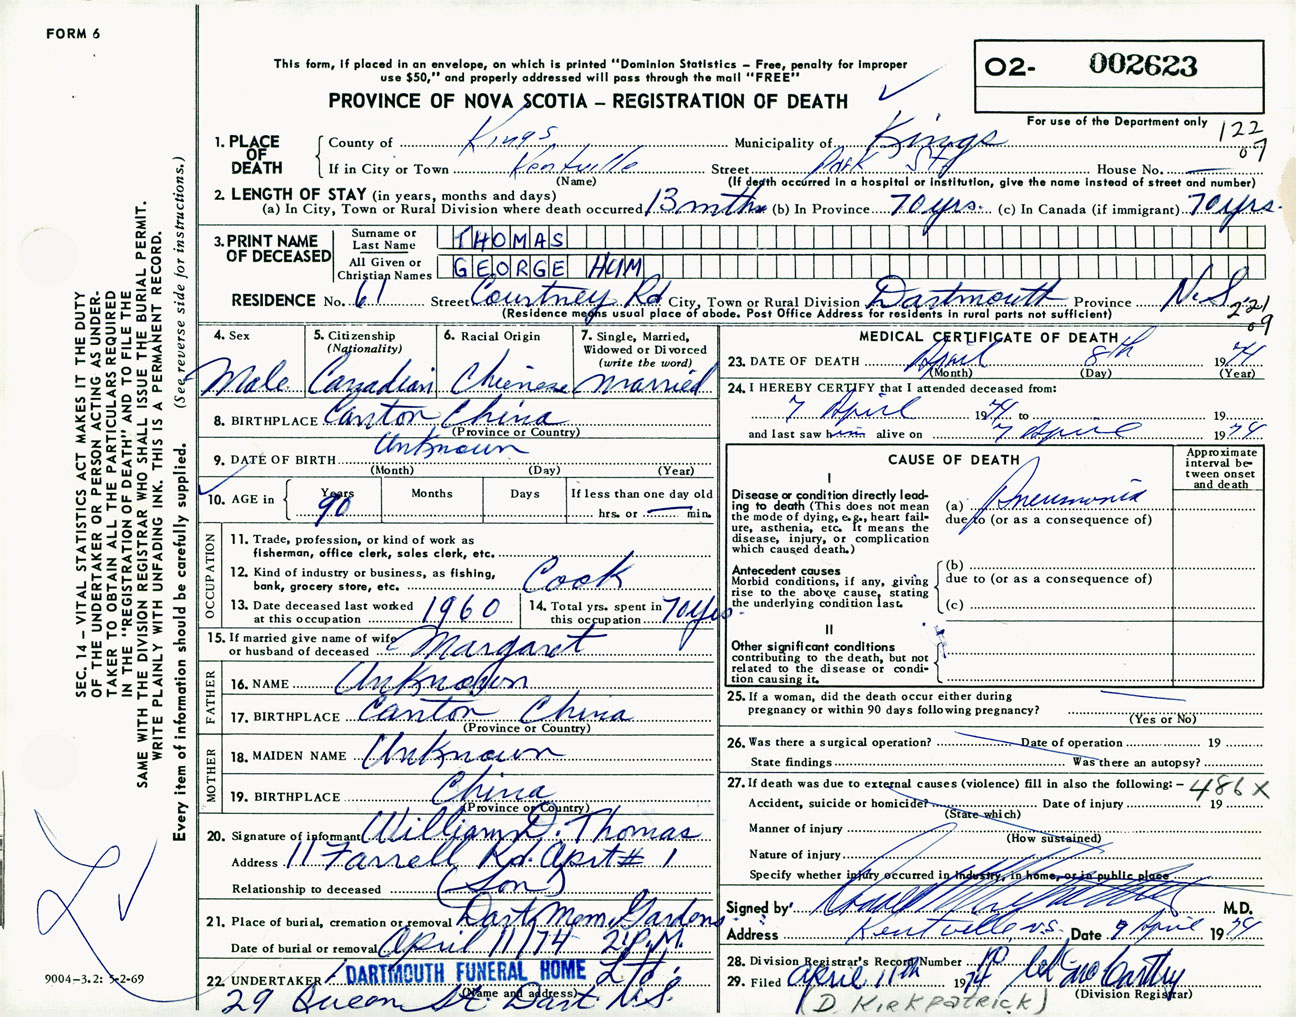 FORM 6
This form, if placed in an envelope, on which is printed "Dominion Statistics – Free, penalty for improper
use $50," and properly addressed will pass through the mail "FREE"
PROVINCE OF NOVA SCOTIA – REGISTRATION OF DEATH
O2- 002623
For use of the Department only
122
07
1. PLACE OF DEATH
County of Kings Municipality of Kings
If in City or Town Kentville Street Park St House No. —
(Name) (If death occurred in a hospital or institution, give the name instead of street and number)
2. LENGTH OF STAY (in years, months and days)
(a) In City, Town or Rural Division where death occurred 13 mths (b) In Province 70 yrs. (c) In Canada (if immigrant) 70 yrs.
3. PRINT NAME OF DECEASED
Surname or Last Name THOMAS
All Given or Christian Names GEORGE HUM
RESIDENCE No. 61 Street Courtney Rd City, Town or Rural Division Dartmouth Province N.S.
(Residence means usual place of abode. Post Office Address for residents in rural parts not sufficient)
221
09
4. Sex Male
5. Citizenship (Nationality) Canadian
6. Racial Origin Chienese
7. Single, Married, Widowed or Divorced (write the word) Married
8. BIRTHPLACE Canton China
(Province or Country)
9. DATE OF BIRTH Unknown
(Month) (Day) (Year)
10. AGE in Years 90 Months Days If less than one day old
hrs. or — min.
OCCUPATION
11. Trade, profession, or kind of work as
fisherman, office clerk, sales clerk, etc.
12. Kind of industry or business, as fishing,
bank, grocery store, etc. Cook
13. Date deceased last worked
at this occupation 1960
14. Total yrs. spent in
this occupation 70 yrs.
15. If married give name of wife
or husband of deceased Margaret
FATHER
16. NAME Unknown
17. BIRTHPLACE Canton China
(Province or Country)
MOTHER
18. MAIDEN NAME Unknown
19. BIRTHPLACE China
(Province or Country)
20. Signature of informant William D. Thomas
Address 11 Farrell Rd. Apt # 1
Relationship to deceased (Son)
21. Place of burial, cremation or removal Dart Mem. Gardens
Date of burial or removal April 11/74 2 P.M.
22. UNDERTAKER DARTMOUTH FUNERAL HOME Ltd.
(Name and address)
29 Queen St. Dart. N.S.
MEDICAL CERTIFICATE OF DEATH
23. DATE OF DEATH April 8th 1974
(Month) (Day) (Year)
24. I HEREBY CERTIFY that I attended deceased from:
7 April 1974 to 19
and last saw him alive on 7 April 1974
CAUSE OF DEATH
Approximate interval between onset and death
I
Disease or condition directly lead-
ing to death (This does not mean
the mode of dying, e.g., heart fail-
ure, asthenia, etc. It means the
disease, injury, or complication
which caused death.)
(a) Pneumonia
due to (or as a consequence of)
Antecedent causes
Morbid conditions, if any, giving
rise to the above cause, stating
the underlying condition last.
(b)
due to (or as a consequence of)
(c)
II
Other significant conditions
contributing to the death, but not
related to the disease or condi-
tion causing it.
25. If a woman, did the death occur either during
pregnancy or within 90 days following pregnancy?
(Yes or No)
26. Was there a surgical operation? Date of operation 19
State findings Was there an autopsy?
27. If death was due to external causes (violence) fill in also the following: – 486 X
Accident, suicide or homicide? Date of injury 19
(State which)
Manner of injury
(How sustained)
Nature of injury
Specify whether injury occurred in industry, in home, or in public place
Signed by M.D.
Address Kentville N.S. Date 9 April 1974
28. Division Registrar's Record Number
29. Filed April 11th 1974
(Division Registrar)
(D. KIRKPATRICK)
SEC. 14 – VITAL STATISTICS ACT MAKES IT THE DUTY
OF THE UNDERTAKER OR PERSON ACTING AS UNDER-
TAKER TO OBTAIN ALL THE PARTICULARS REQUIRED
IN THE "REGISTRATION OF DEATH" AND TO FILE THE
SAME WITH THE DIVISION REGISTRAR WHO SHALL ISSUE THE BURIAL PERMIT.
WRITE PLAINLY WITH UNFADING INK. THIS IS A PERMANENT RECORD.
Every item of information should be carefully supplied. (See reverse side for instructions.)
9004–3.2: 5-2-69